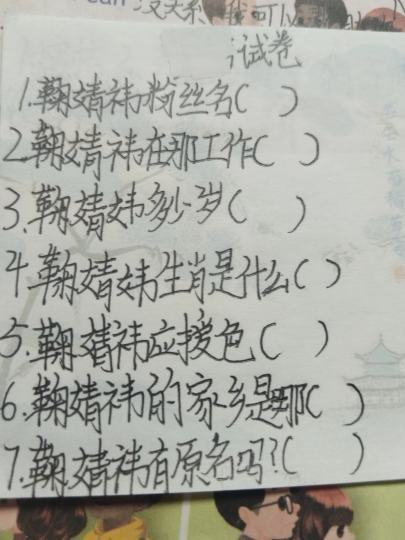 can 没关系
试卷
1.鞠婧祎粉丝名( )
2.鞠婧祎在那工作( )
3.鞠婧祎多少岁( )
4.鞠婧祎生肖是什么( )
5.鞠婧祎应援色( )
6.鞠婧祎的家乡是那( )
7.鞠婧祎有原名吗?( )